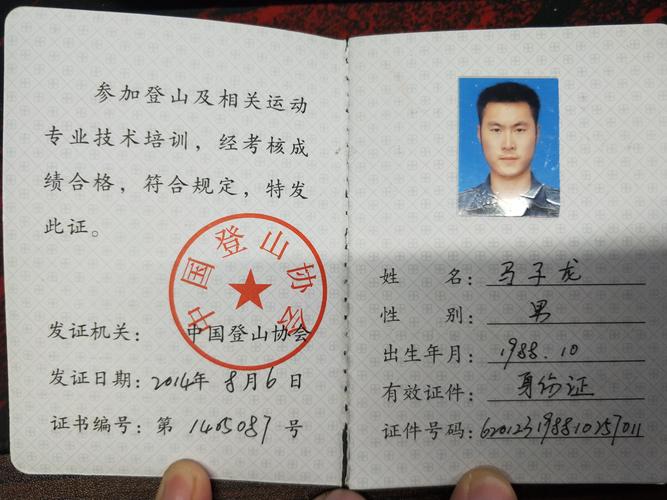 参加登山及相关运动
专业技术培训，经考核成
绩合格，符合规定，特发
此证。
中国登山协会
发证机关：中国登山协会
发证日期：2014年8月6日
证书编号：第 1405087 号
姓 名：马子龙
性 别：男
出生年月：1988.10
有效证件：身份证
证件号码：620123198810257011